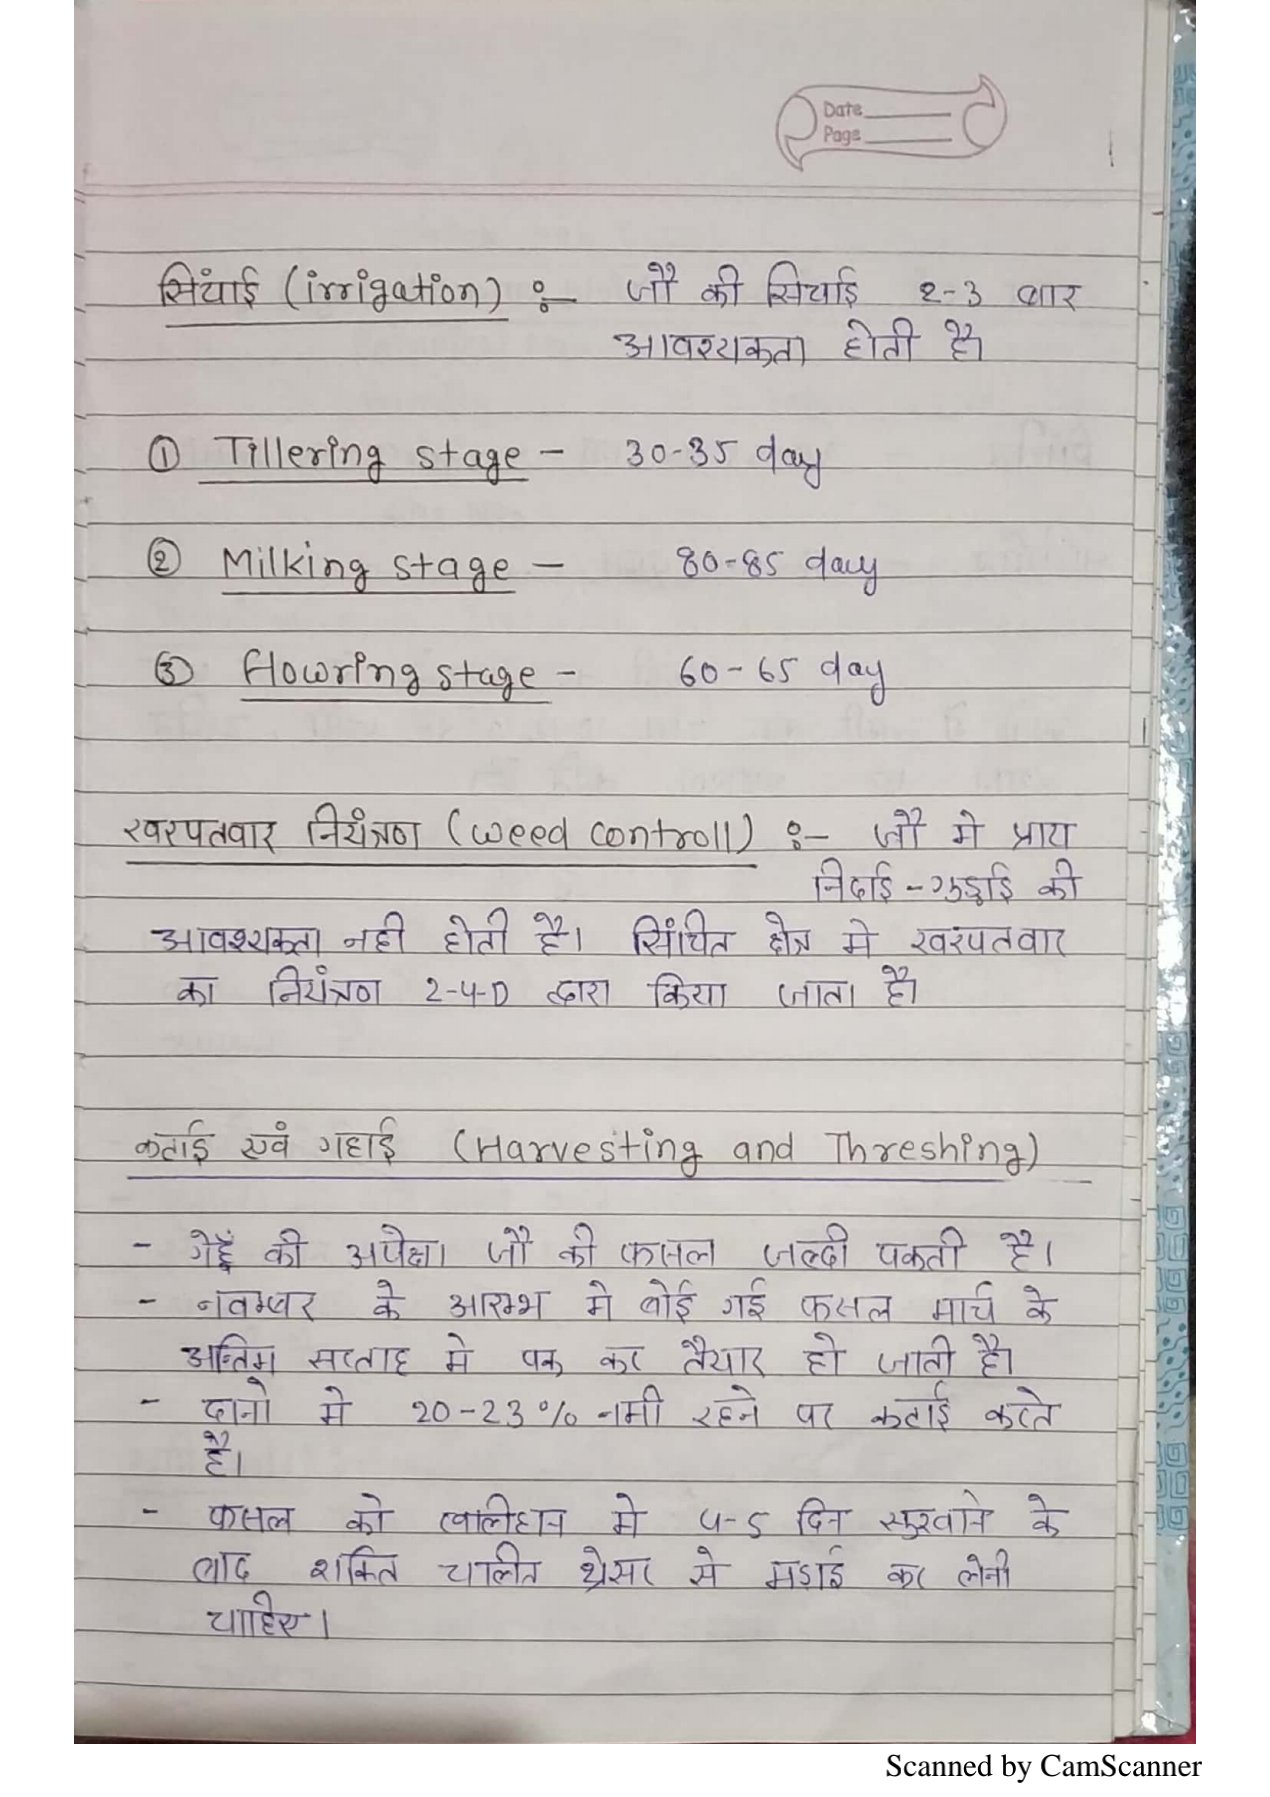 Date
Page
सिंचाई (irrigation) :- जौ की सिचाई 2-3 बार
आवश्यकता होती है।
① Tillering stage - 30-35 day
② Milking stage - 80-85 day
③ flowring stage - 60-65 day
खरपतवार नियंत्रण (weed controll) :- जौ मे प्राय
निदाई - गुड़ाई की
आवश्यकता नही होती है। सिंचित क्षेत्र मे खरपतवार
का नियंत्रण 2-4-D द्वारा किया जाता है।
कताई एवं गहाई (Harvesting and Threshing)
- गेहूँ की अपेक्षा जौ की फसल जल्दी पकती है।
- नवम्बर के आरम्भ मे बोई गई फसल मार्च के
अन्तिम सप्ताह मे पक कर तैयार हो जाती है।
- दानो मे 20-23% नमी रहने पर कताई करते
है।
- फसल को खलीहान मे 4-5 दिन सुखाने के
बाद शक्ति चालीत थ्रेसर से मड़ाई कर लेनी
चाहिए।
Scanned by CamScanner